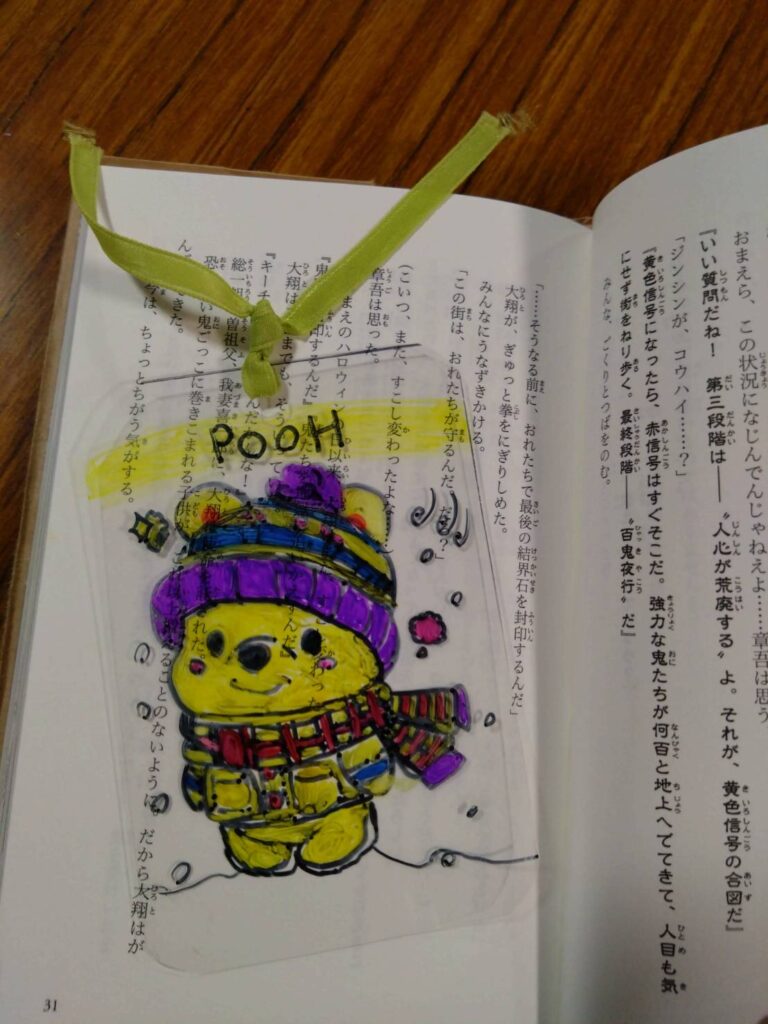 おまえら、この状況になじんでんじゃねえよ……章吾は思う
『いい質問だね！　第三段階は――〝人心が荒廃する〟よ。それが、黄色信号の合図だ』
「ジンシンが、コウハイ……？」
『黄色信号になったら、赤信号はすぐそこだ。強力な鬼たちが何百と地上へでてきて、人目も気
にせず街をねり歩く。最終段階――〝百鬼夜行〟だ』
みんな、ごくりとつばをのむ。
「……そうなる前に、おれたちで最後の結界石を封印するんだ」
大翔が、ぎゅっと拳をにぎりしめた。
みんなにうなずきかける。
「この街は、おれたちが守るんだ。だろ？」
(こいつ、また、すこし変わったよな……)
章吾は思った。
まえのハロウィン 日以来
『鬼 封印するんだ』鬼たち
大翔は までも、そう
『キーチ んだ な！
曽祖父、我妻喜 に、大翔
恐 い鬼ごっこに巻きこまれる子供が、 ることのないように。だから大翔はが
ん きた。
今は、ちょっとちがう気がする。
POOH
31